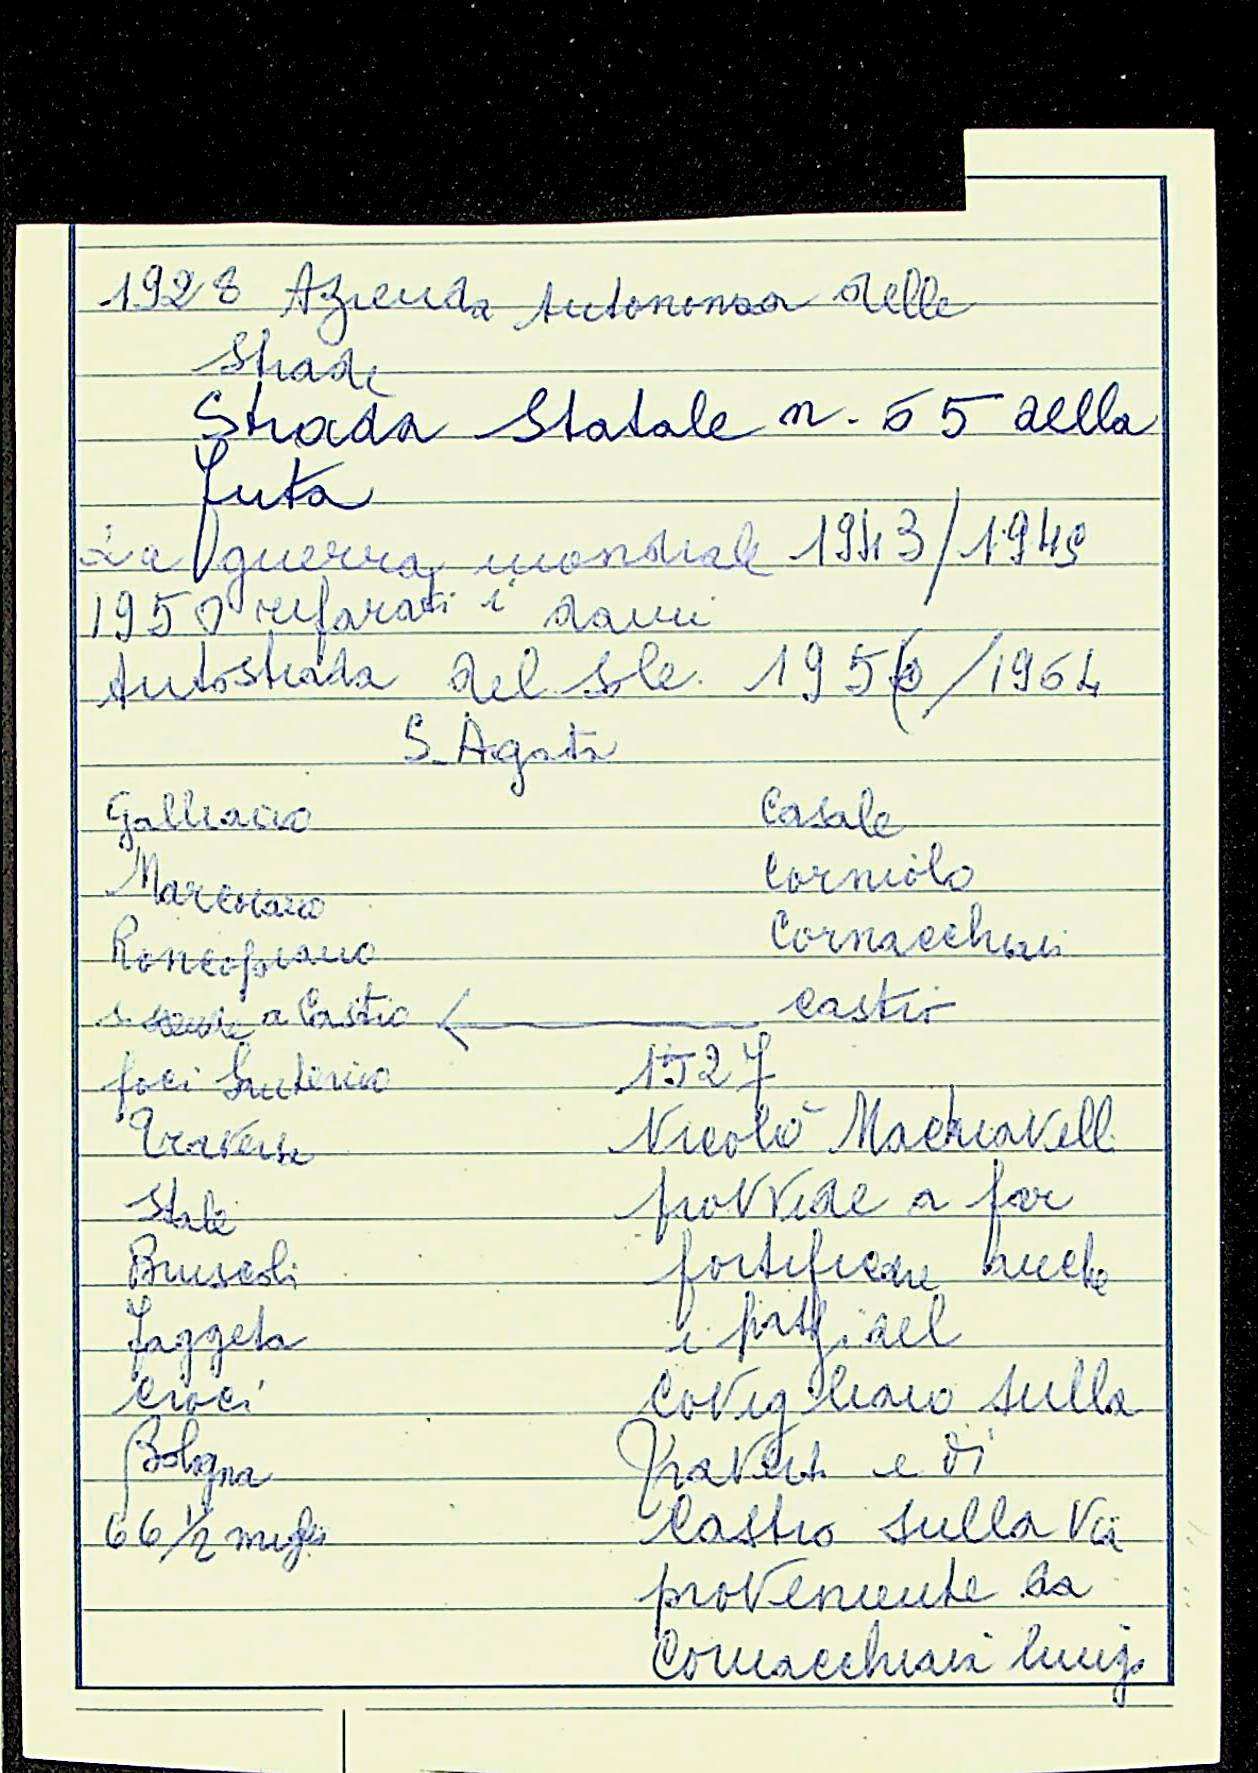 1928 Azienda Autonoma delle
Strade
Strada Statale n. 65 della
Futa
2a guerra mondiale 1943/1945
1950 riparati i danni
Autostrada del Sole. 1956/1964
S. Agata
Galliano
Marcoiano
Roncopiano
si scende a Castro
foci
Traversa
Stale
Bruscoli
Faggeta
Croci
Bologna
66 1/2 miglia
Casale
Corniolo
Cornacchiaia
Castro
1527
Nicolò Machiavelli
provvide a far
fortificare anche
i passi del
Covigliaio sulla
Traversa e di
Castro sulla via
proveniente da
Cornacchiaia lungo